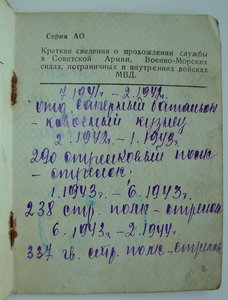 Серия АО
Краткие сведения о прохождении службы
в Советской Армии, Военно-Морских
силах, пограничных и внутренних войсках
МВД.
7.1941 - 2.1942г.
отд. саперный батальон
- ковочный кузнец
2.1942 - 1.1943г.
290 стрелковый полк
- стрелок.
1.1943г. - 6.1943г.
238 стр. полк - стрелок
6.1943 - 2.1944г.
337 гв. стр. полк - стрелок
5